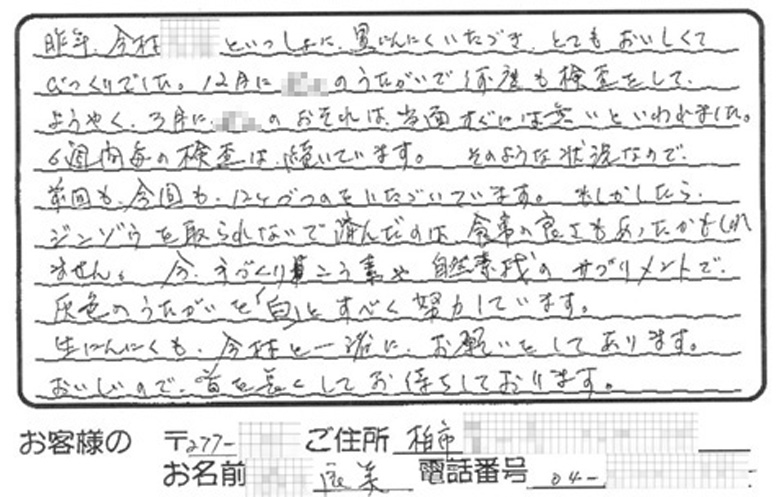 昨年、今村 といっしょに、黒にんにくいただき、とてもおいしくて
びっくりでした。12月に のうたがいで何度も検査をして、
ようやく、3月に、 のおそれは、当面すぐには無いといわれました。
6週間毎の検査は、続いています。 そのような状況なので、
前回も、今回も、12ヶづつのをいただいています。もしかしたら、
ジンゾウを取られないで済んだのは、食事の良さもあったかもしれ
ません。今、手づくり こう素や 自然素材のサプリメントで、
灰色のうたがいを「白」とすべく努力しています。
生にんにくも、今村と一緒に、お願いをしてあります。
おいしいので、首を長くしてお待ちしております。
お客様の 〒277- ご住所 柏市
お名前 良美 電話番号 04-